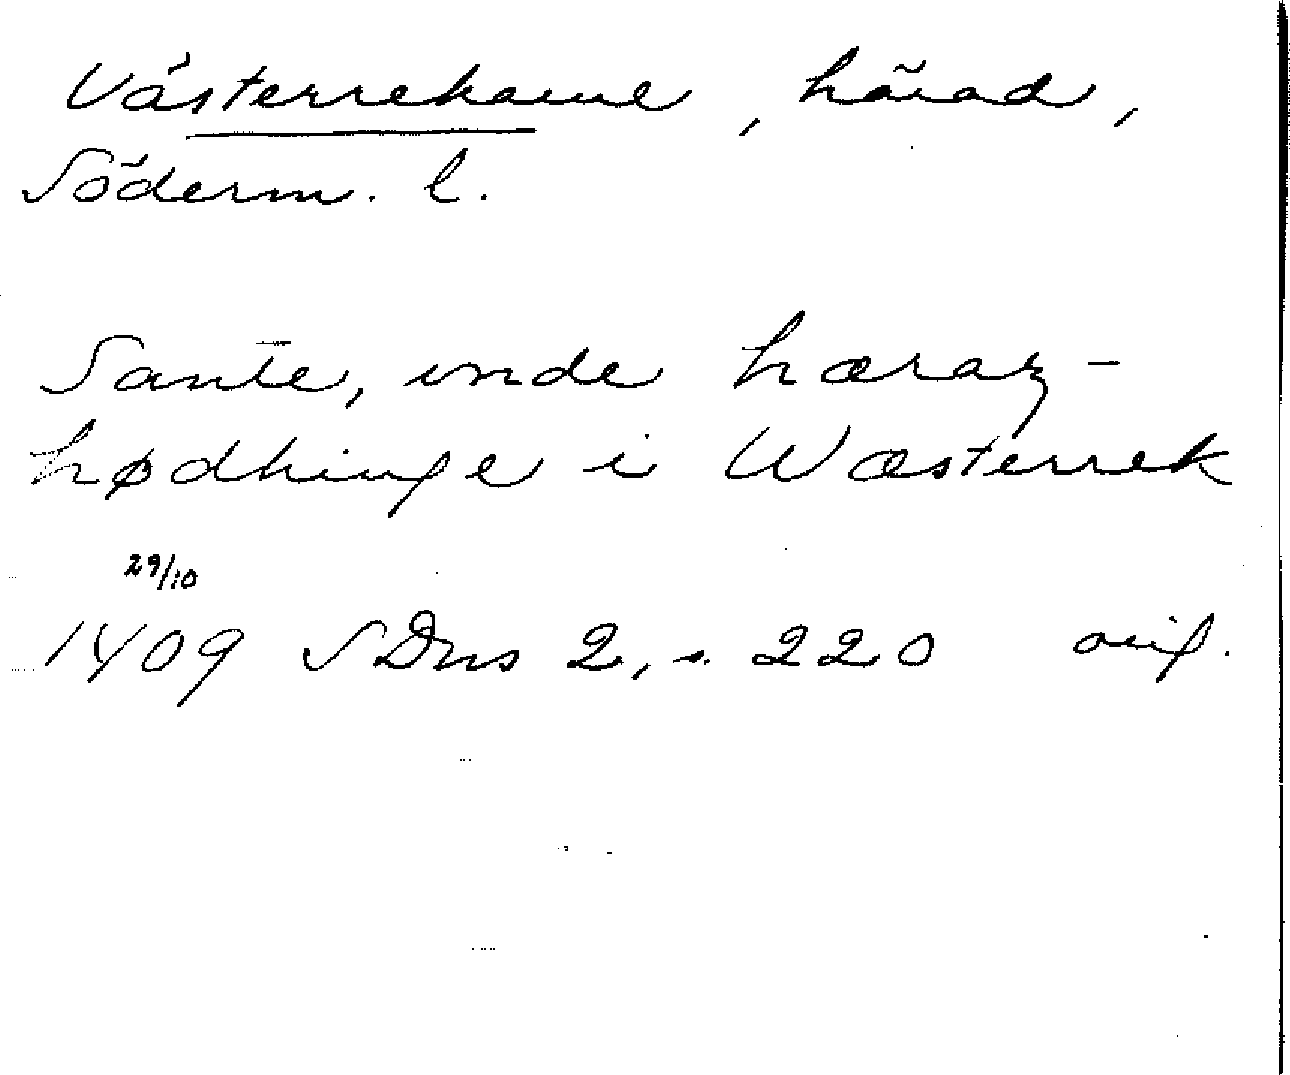 Västerrekarne, härad,
Söderm. l.
Sante, unde hæraz-
hødhinge i Wæsterrek
29/10
1409 SDns 2, s. 220 orig.